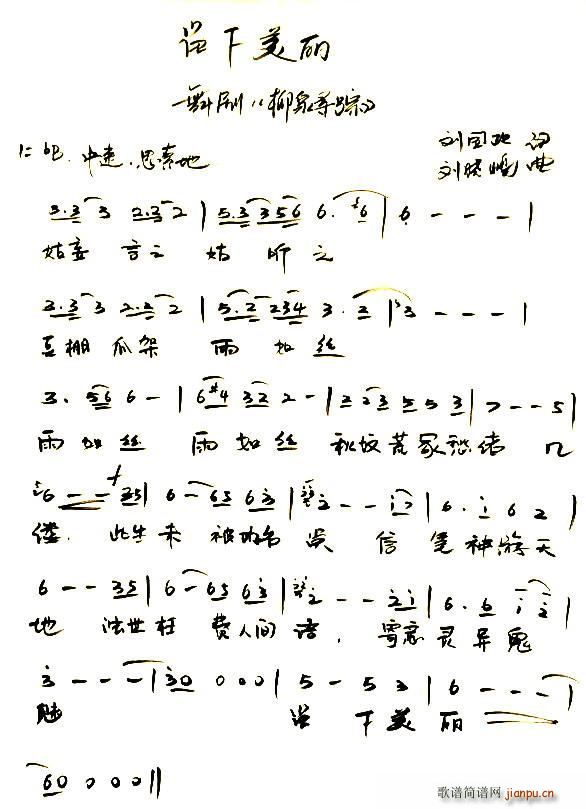 留下美丽
舞剧《柳泉寻踪》
1=bE 中速、思索地
刘国
词
刘晓
曲
3·3 3 2·3 2 | 5·3 3 5 6 6· 6 | 6 - - - |
姑妄言之 姑听之
3·3 3 2·2 2 | 5·2 2 3 4 3· 2 | 3 - - - |
豆棚瓜架 雨如丝
3· 5 6 6 - | 6 #4 3 2 2 - | 2 2 3 5 5 3 | 7 - - 5 |
雨如丝 雨如丝 秋坟荒冢愁绪 几
6 - - 3 5 | 6 - 6 5 6 3 | 2 - - i 7 | 6· i 6 2 |
缕. 此生未 被功名 误 信笔神游天
6 - - 3 5 | 6 - 6 5 6 3 | 2 - - 2 i | 6· 6 i 2 |
地 浊世枉 费人间 语, 寄意灵异鬼
3 - - - | 3 0 0 0 0 | 5 - 5 3 | 6 - - - |
魅 留 下美丽
6 0 0 0 0 ||
歌谱简谱网
jianpu.cn